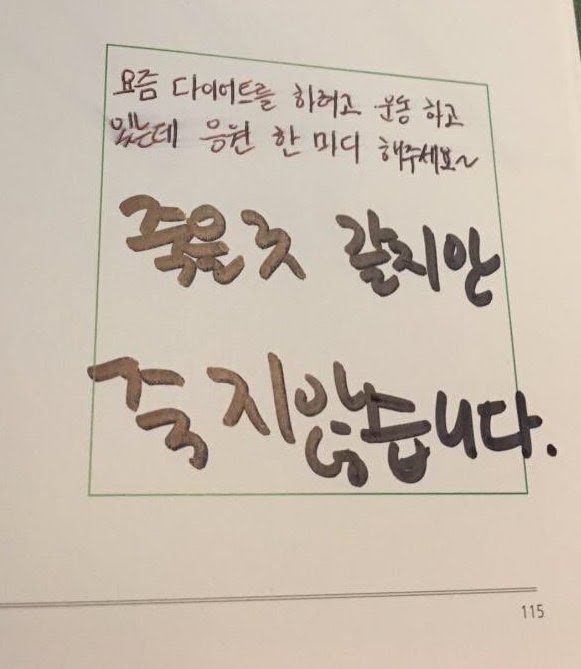 요즘 다이어트를 하려고 운동 하고
있는데 응원 한 마디 해주세요~
죽을 것 같지만
죽지 않습니다.
115